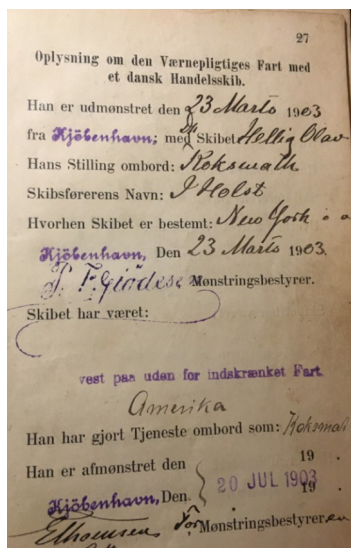 27
Oplysning om den Værnepligtiges Fart med
et dansk Handelsskib.
Han er udmønstret den 23 Marts 1903
fra Kjöbenhavn; med Skibet Hellig Olav
Hans Stilling ombord: Koksmath
Skibsførerens Navn: J Holst
Hvorhen Skibet er bestemt: New York
Kjöbenhavn, Den 23 Marts 1903.
Mønstringsbestyrer.
Skibet har været:
vest paa uden for indskrænket Fart.
Amerika
Han har gjort Tjeneste ombord som: Koksmath
Han er afmønstret den 19
20 JUL 1903
Kjöbenhavn, Den. 19
For Mønstringsbestyreren